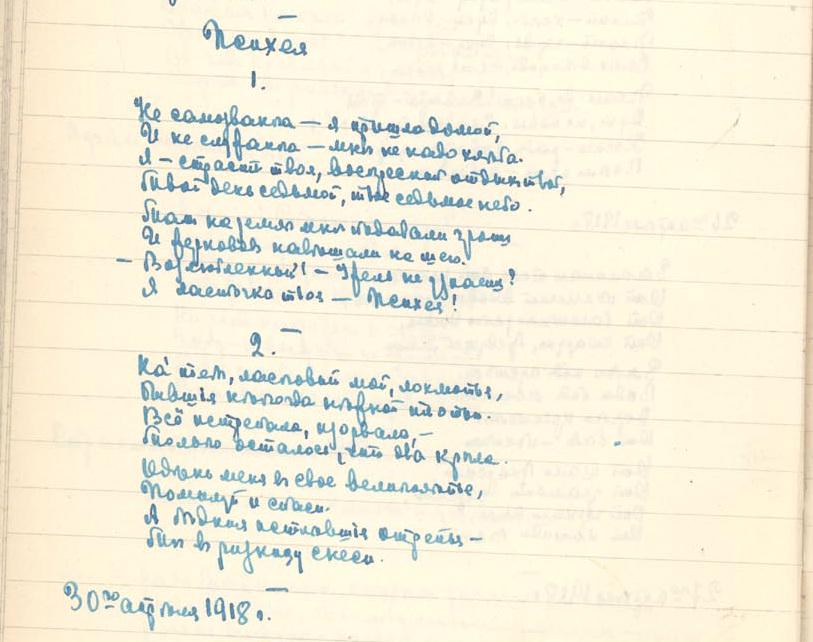 Психея
1.
Не самозванка — я пришла домой,
И не служанка — мнѣ не надо хлѣба.
Я — страсть твоя, воскресный отдых твой,
Твой день седьмой, твое седьмое небо.
Там на землѣ мнѣ подавали грош
И жерновов навѣшали на шею.
— Возлюбленный! — Ужель не узнаешь?
Я ласточка твоя — Психея!
2.
На́ тебѣ, ласковый мой, лохмотья,
Бывшія нѣкогда нѣжной плотью.
Всё истрепала, изорвала, —
Только осталось, что два крыла.
Одѣнь меня в свое великолѣпье,
Помилуй и спаси.
А бѣдныя истлѣвшія отрепья —
Ты в ризницу снеси.
30го апрѣля 1918 г.